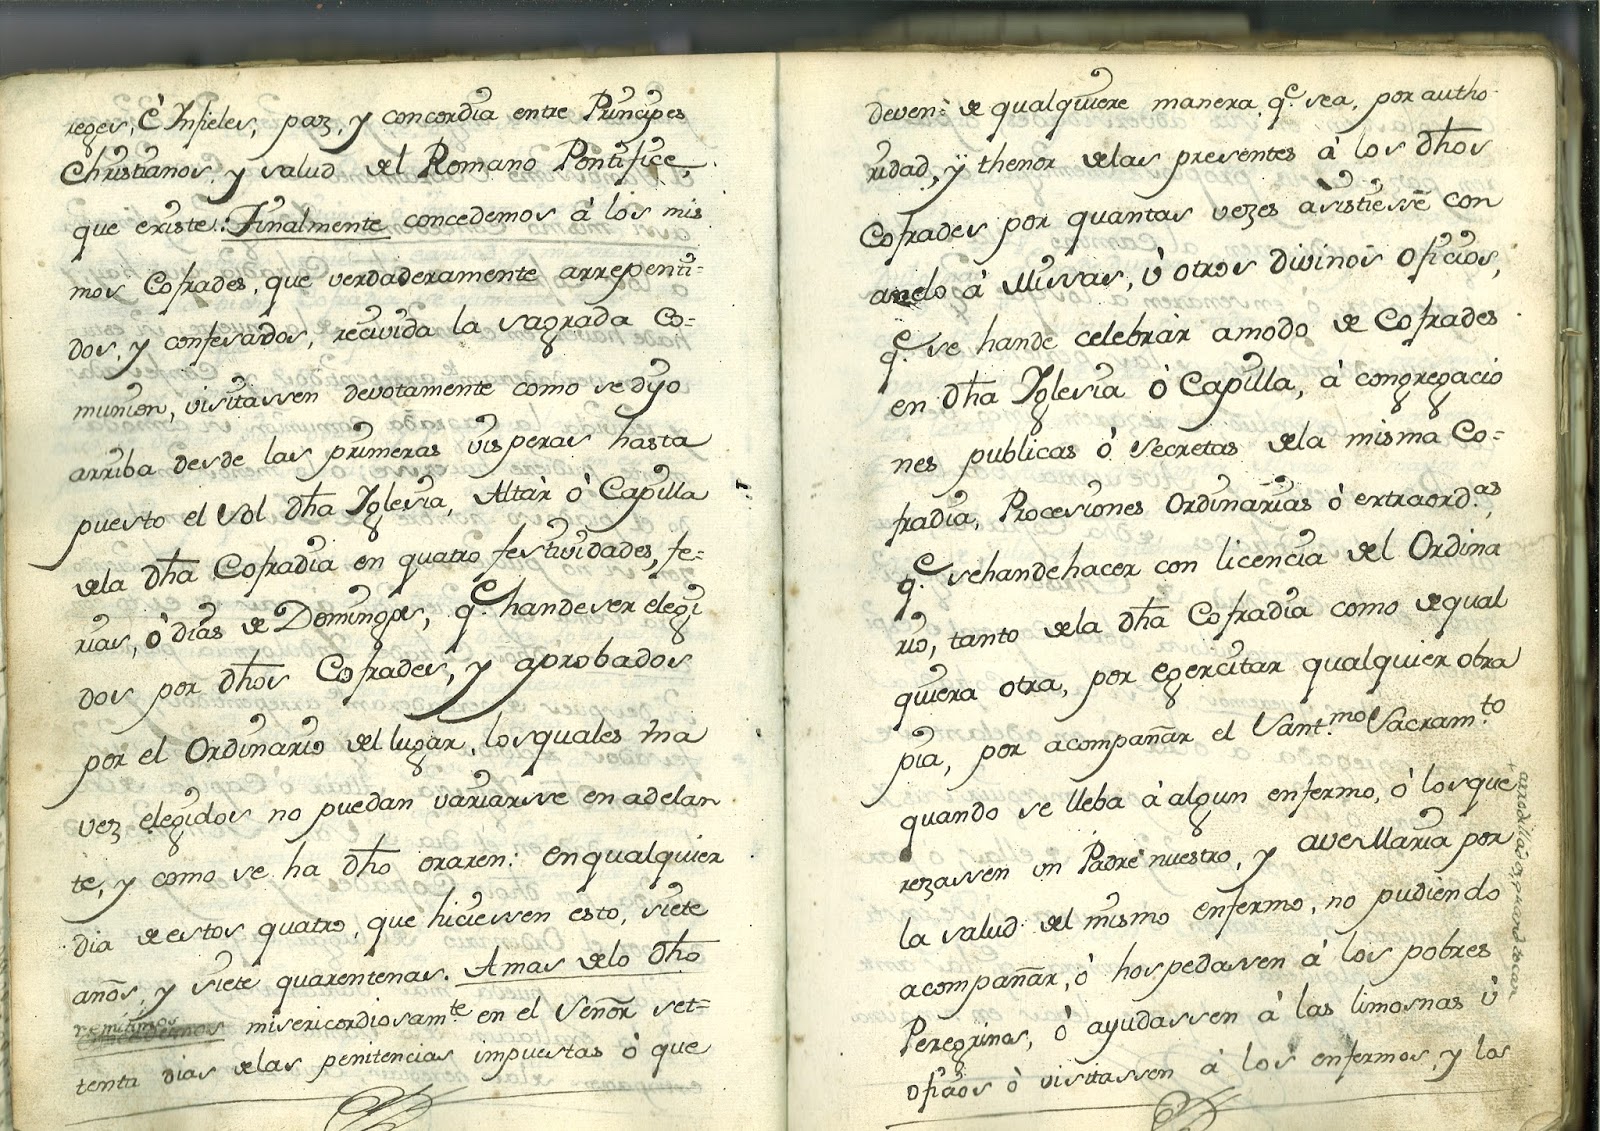 reges, è Infieles, paz, y concordia entre Principes
Christianos, y salud del Romano Pontifice,
que existe: Finalmente concedemos à los mis
mos Cofrades, que verdaderamente arrepenti=
dos, y confesados, recivida la sagrada Co=
munion, visitassen devotamente como se dijo
arriba desde las primeras visperas hasta
puesto el Sol dha Iglesia, Altàr ò Capilla
dela dha Cofradia en quatro festividades, fe=
rias, ò dias de Domingos, qe. handeser elegi
dos por dhos Cofrades, y aprobados
por el Ordinario del lugar, los quales vna
vez elegidos no puedan variarsse en adelan
te, y como se ha dho oraren: en qualquier
dia de estos quatro, que hiciessen esto, siete
años, y siete quarentenas. Amas delo dho
remitimos misericordiosamte en el Señor set=
tenta dias delas penitencias impuestas ò que
deven: de qualquiere manera qe. sea, por autho
ridad, ÿ thenor delas presentes à los dhos
Cofrades por quantas vezes asistiessē con
anelo à Missas, ù otros divinos Oficios,
qe. se hande celebràr amodo de Cofrades
en dha Iglesia ò Capilla, à congregacio
nes publicas ò secretas dela misma Co=
fradia, Processiones Ordinarias ò extraordas,
qe. sehandehacer con licencia del Ordina
rio, tanto dela dha Cofradia como de qual
quiera otra, por egercitar qualquier obra
pia, por acompañar el Santmo. Sacramto.
quando se lleba à algun enfermo, ò los que
rezassen un Padre nuestro, y ave Maria por
la salud del mismo enfermo, no pudiendo
acompañar, ò hospedassen à los pobres
Peregrinos, ò ayudassen à las limosnas ù
oficios ò visitassen à los enfermos, y los
arrodillados, quando tocan